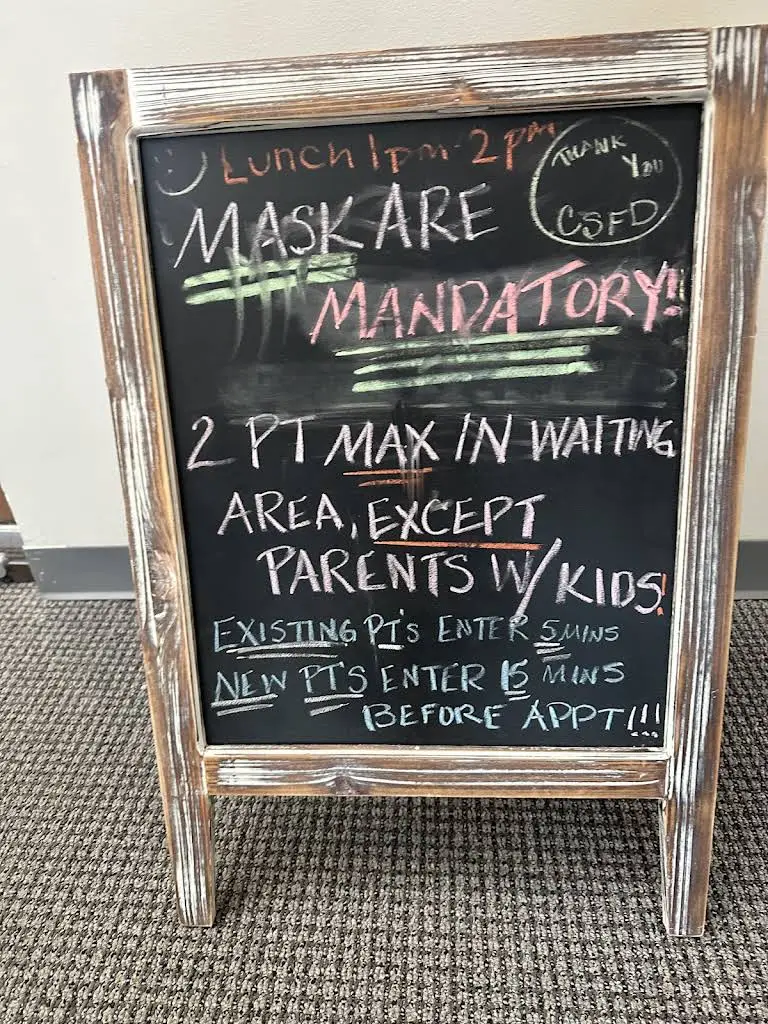 Lunch 1pm-2pm
THANK
YOU
CSFD
MASK ARE
MANDATORY!
2 PT MAX IN WAITING
AREA, EXCEPT
PARENTS W/ KIDS!
EXISTING PT'S ENTER 5 MINS
NEW PTS ENTER 15 MINS
BEFORE APPT!!!